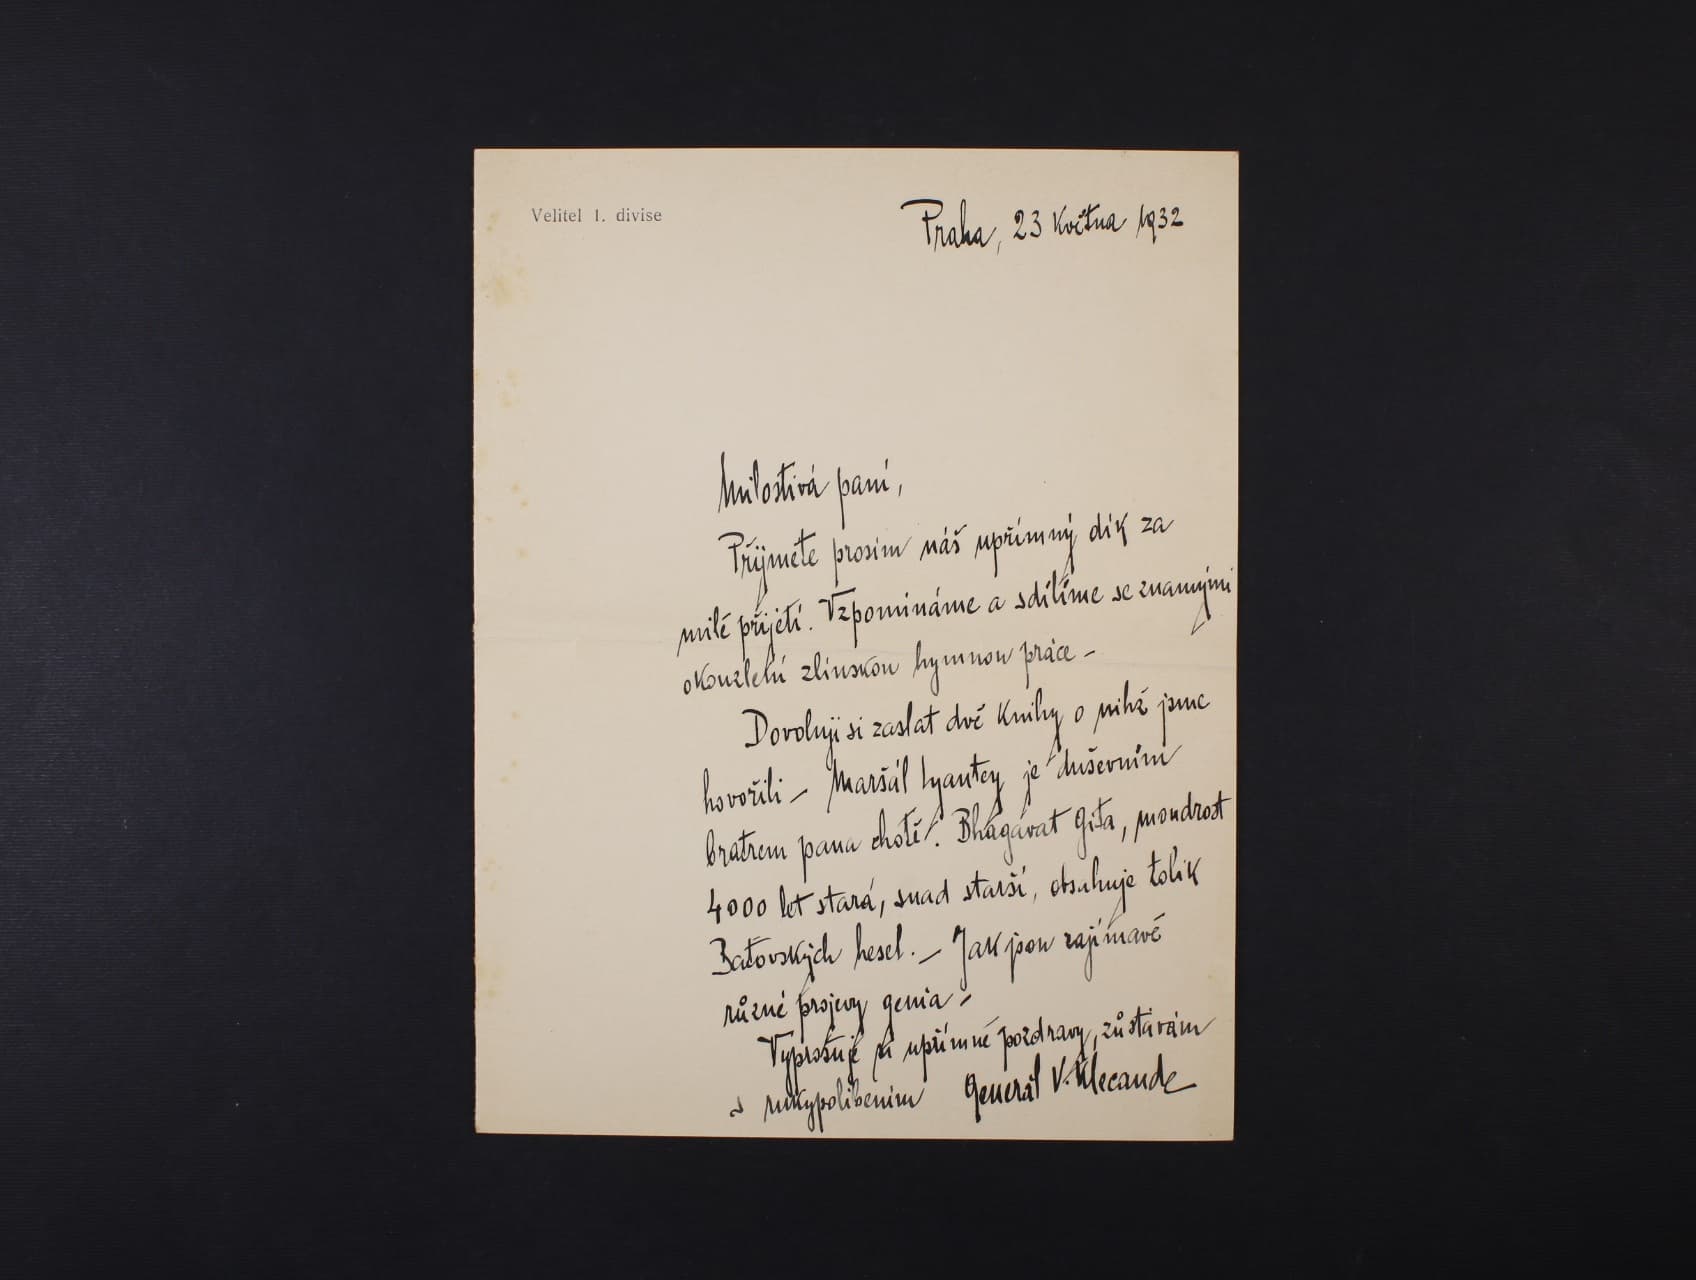 Velitel 1. divise
Praha, 23 května 1932
Milostivá paní,
Přijměte prosím náš upřímný dík za
milé přijetí. Vzpomínáme a sdílíme se známými
okouzlení zlínskou hymnou práce –
Dovoluji si zaslat dvě knihy o nihž jsme
hovořili – Maršál Lyautey je duševním
bratrem pana chotě! Bhágavat Gita, moudrost
4000 let stará, snad starší, obsahuje tolik
Baťovských hesel. – Jak jsou zajímavé
různé projevy genia –
Vyprošuje si upřímné pozdravy, zůstávám
s rukypolíbením Generál V. Klecanda